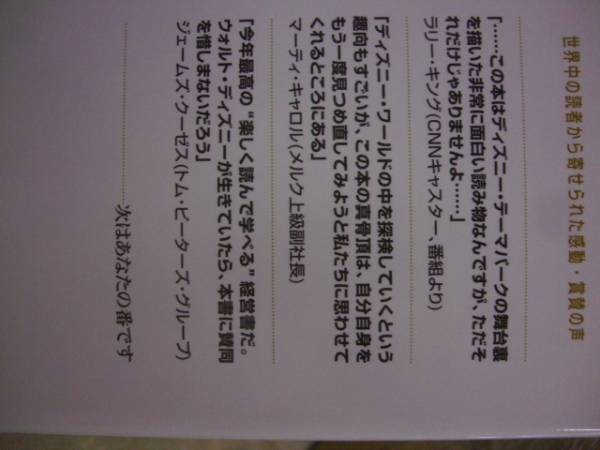 世界中の読者から寄せられた感動・賞賛の声
「……この本はディズニー・テーマパークの舞台裏
を描いた非常に面白い読み物なんですが、ただそ
れだけじゃありませんよ……」
ラリー・キング(CNNキャスター、番組より)
「ディズニー・ワールドの中を探検していくという
趣向もすごいが、この本の真骨頂は、自分自身を
もう一度見つめ直してみようと私たちに思わせて
くれるところにある」
マーティ・キャロル(メルク上級副社長)
「今年最高の“楽しく読んで学べる”経営書だ。
ウォルト・ディズニーが生きていたら、本書に賛同
を惜しまないだろう」
ジェームズ・クーゼス(トム・ピーターズ・グループ)
次はあなたの番です